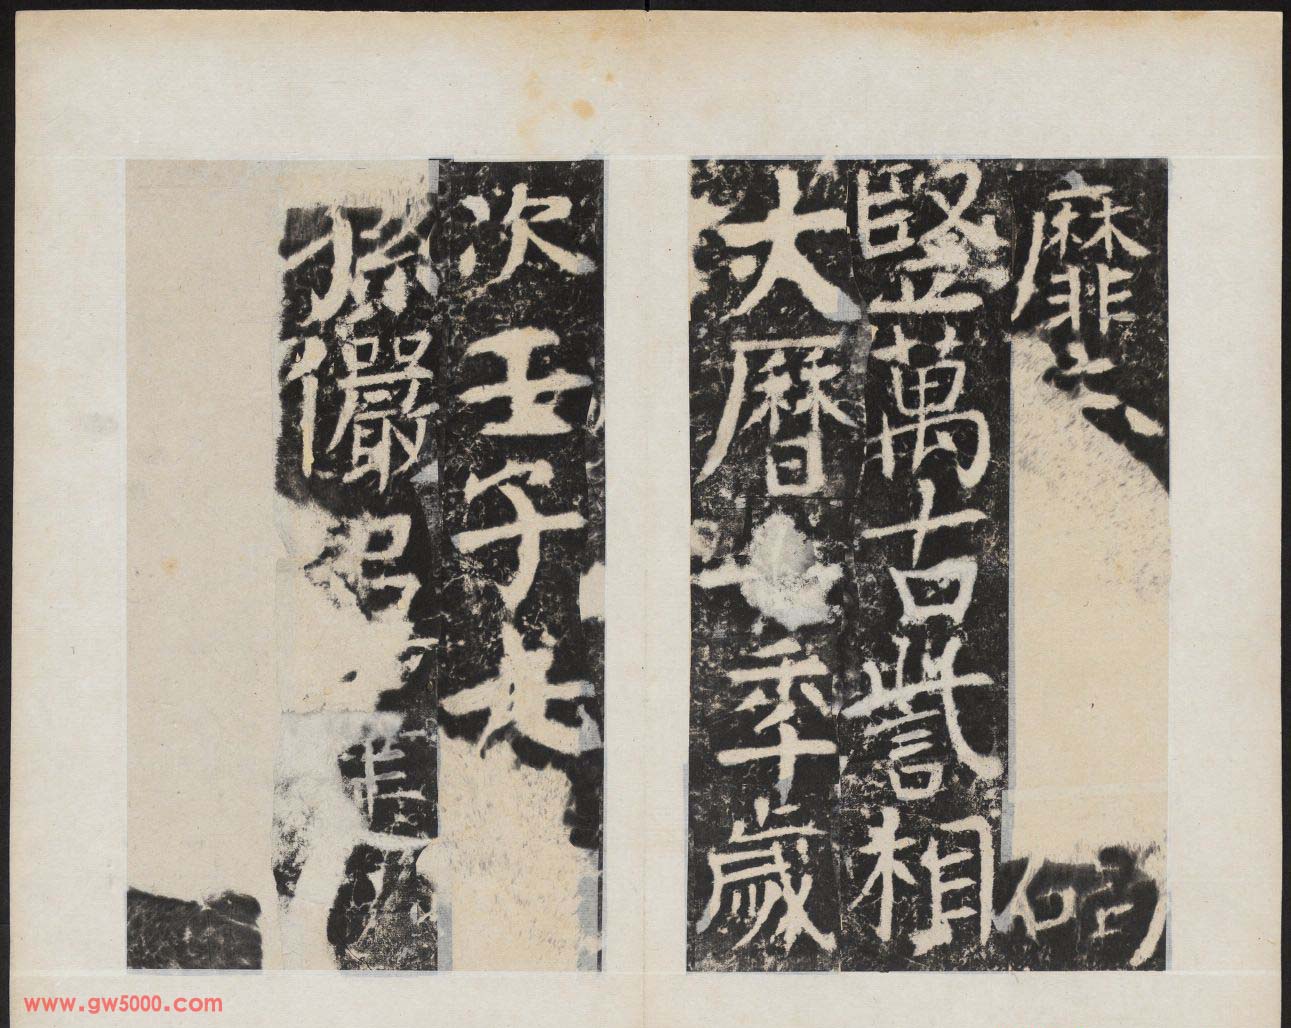 靡
竪萬古訾相
大曆秊歲
次壬子
孫儼追
www.gw5000.com